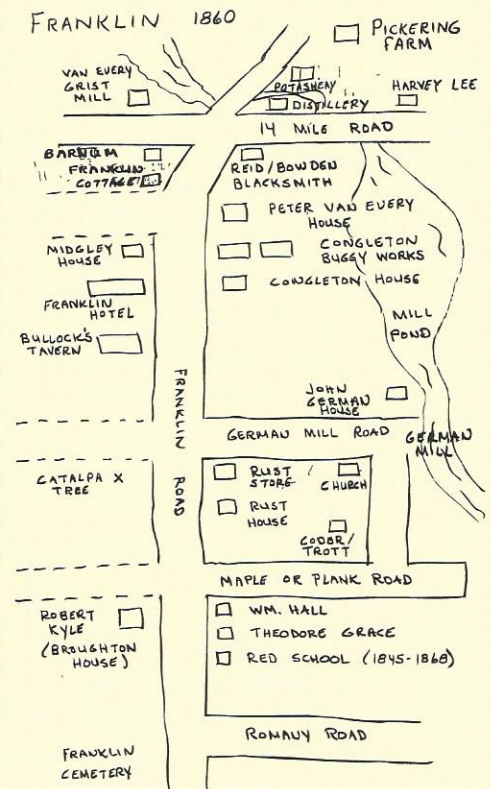 FRANKLIN 1860
PICKERING
FARM
VAN EVERY
GRIST
MILL
POTASHERY
DISTILLERY
HARVEY LEE
14 MILE ROAD
BARNUM
FRANKLIN
COTTAGE
REID/BOWDEN
BLACKSMITH
PETER VAN EVERY
HOUSE
MIDGLEY
HOUSE
CONGLETON
BUGGY WORKS
CONGLETON HOUSE
FRANKLIN
HOTEL
BULLOCK'S
TAVERN
MILL
POND
FRANKLIN
ROAD
JOHN
GERMAN
HOUSE
GERMAN MILL ROAD
GERMAN
MILL
CATALPA X
TREE
RUST
STORE
CHURCH
RUST
HOUSE
CODER/
TROTT
MAPLE OR PLANK ROAD
ROBERT
KYLE
(BROUGHTON
HOUSE)
WM. HALL
THEODORE GRACE
RED SCHOOL (1845-1868)
ROMANY ROAD
FRANKLIN
CEMETERY